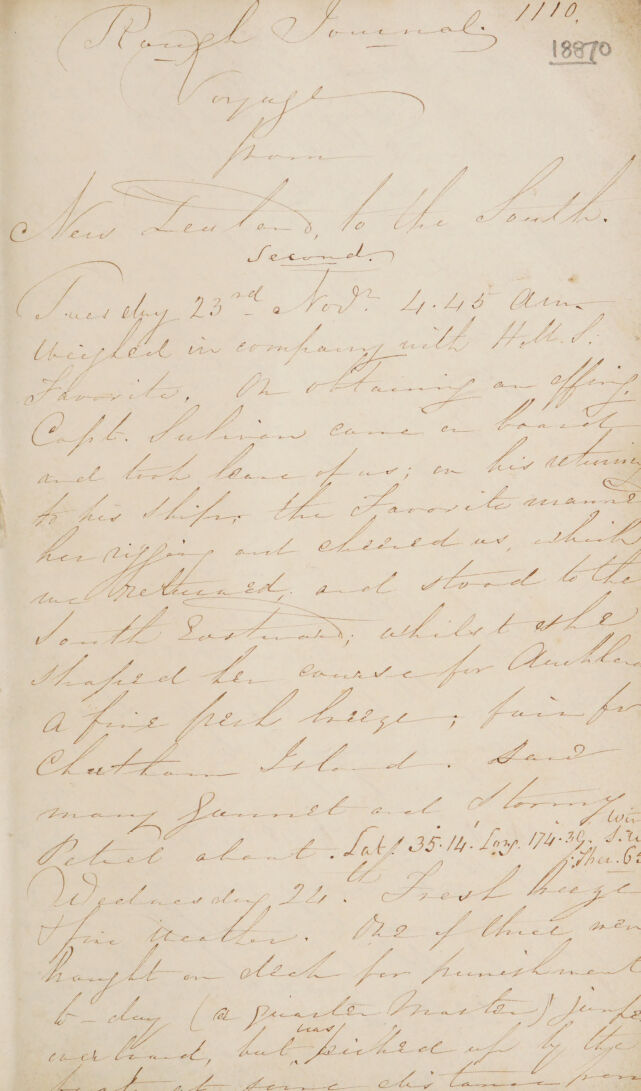 1110.
18870
Rough Journal.
Voyage
from
New Zealand, to the South.
Second.
Tuesday 23rd Novr. 4.45 Am
Weighed in company with H.M.S.
Favorite. On obtaining an offing
Capt. Sulivan came on board
and took leave of us; on his returning
to his ship, the Favorite manne
her rigging and cheered us, which
we returned, and stood to the
South Eastward; whilst she
shaped her course for Aucklan
A fine fresh breeze, fair for
Chatham Island. Saw
many Gannet and Stormy
Petrel about. Lat. 35.14. Long. 174.39. Win
Ther. 6
Wednesday 24th Fresh breeze
& fine weather. One of three men
brought on deck for punishment
to-day (a quarter Master) jumpe
overboard, but was picked up by the
boat at some distance from